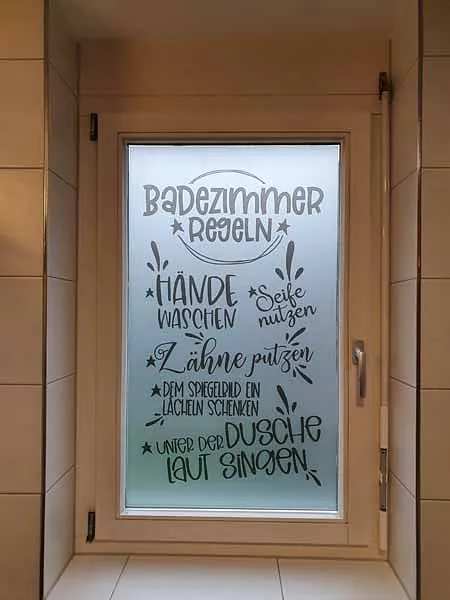 BADEZIMMER
REGELN
HÄNDE
WASCHEN
Seife
nutzen
Zähne putzen
DEM SPIEGELBILD EIN
LÄCHELN SCHENKEN
UNTER DER DUSCHE
LAUT SINGEN